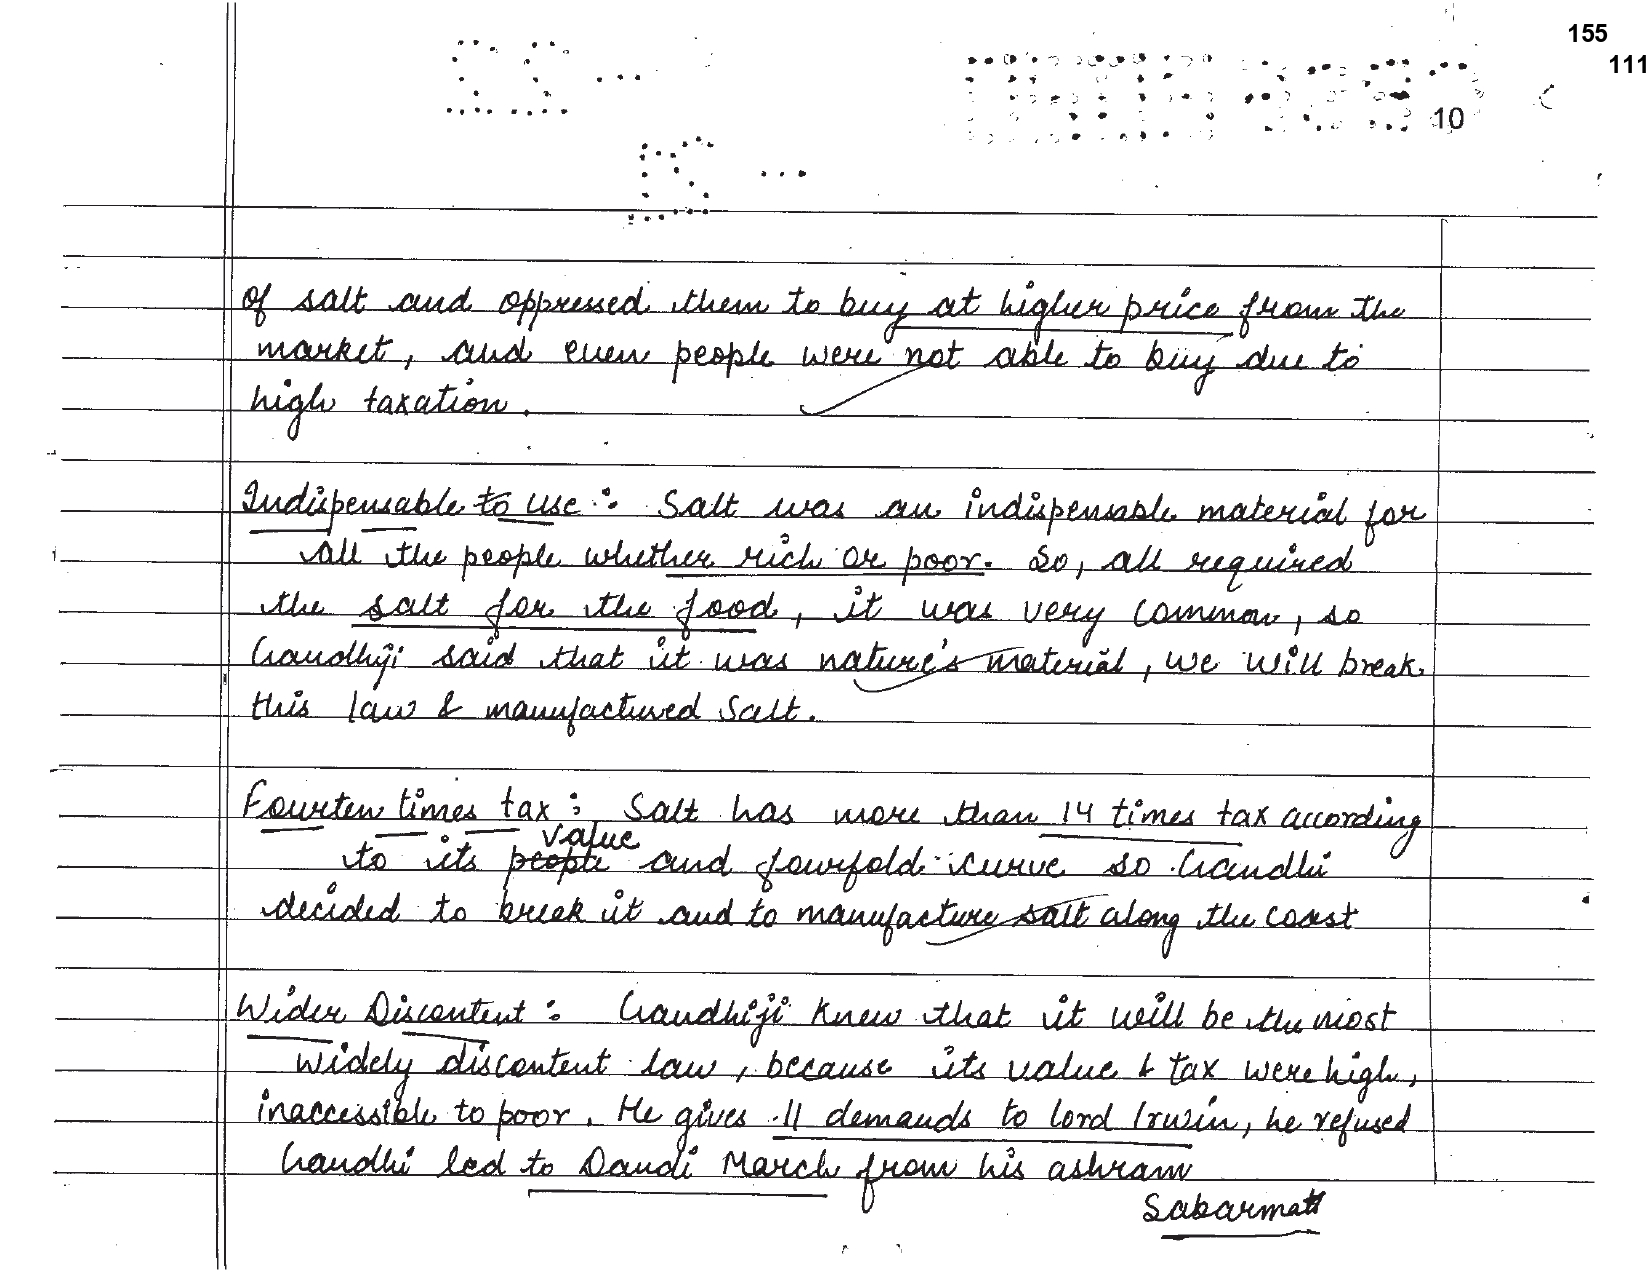 155
111
10
of salt and oppressed them to buy at higher price from the
market, and even people were not able to buy due to
high taxation.
Indispensable to use : Salt was an indispensable material for
all the people whether rich or poor. So, all required
the salt for the food, it was very common, so
Gandhiji said that it was nature's material, we will break
this law & manufactured salt.
Fourten times tax : Salt has more than 14 times tax according
to its value and fourfold curve so Gandhi
decided to break it and to manufacture salt along the coast
Wider Discontent : Gandhiji knew that it will be the most
widely discontent law, because its value & tax were high,
inaccessible to poor. He gives 11 demands to lord Irwin, he refused
Gandhi led to Dandi March from his ashram
Sabarmati